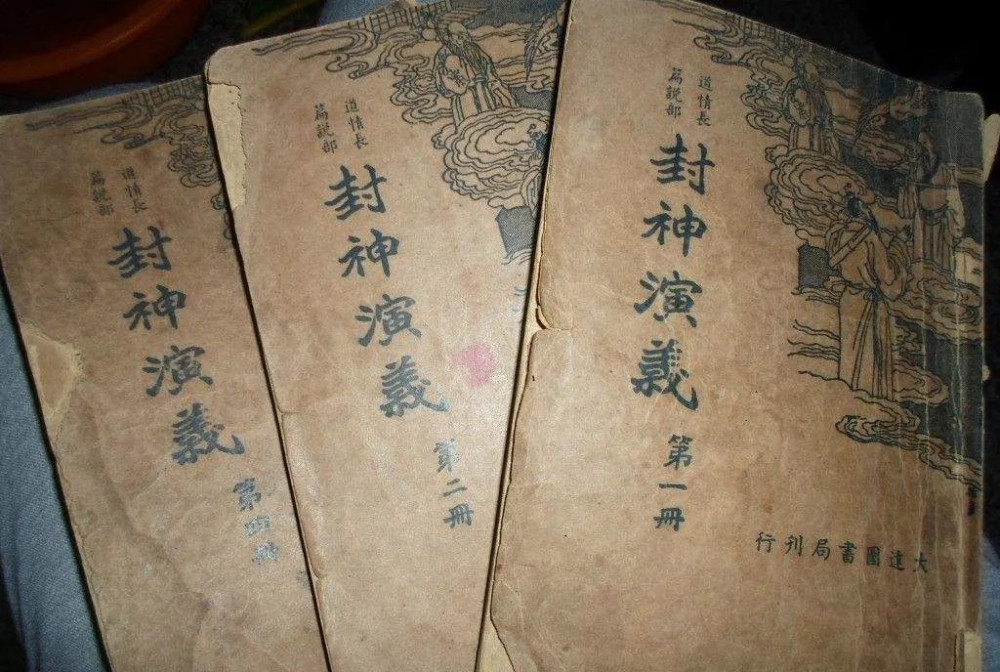 道情長
篇説部
封神演義
第一冊
大達圖書局刊行
道情長
篇説部
封神演義
第二冊
道情長
篇説部
封神演義
第四冊